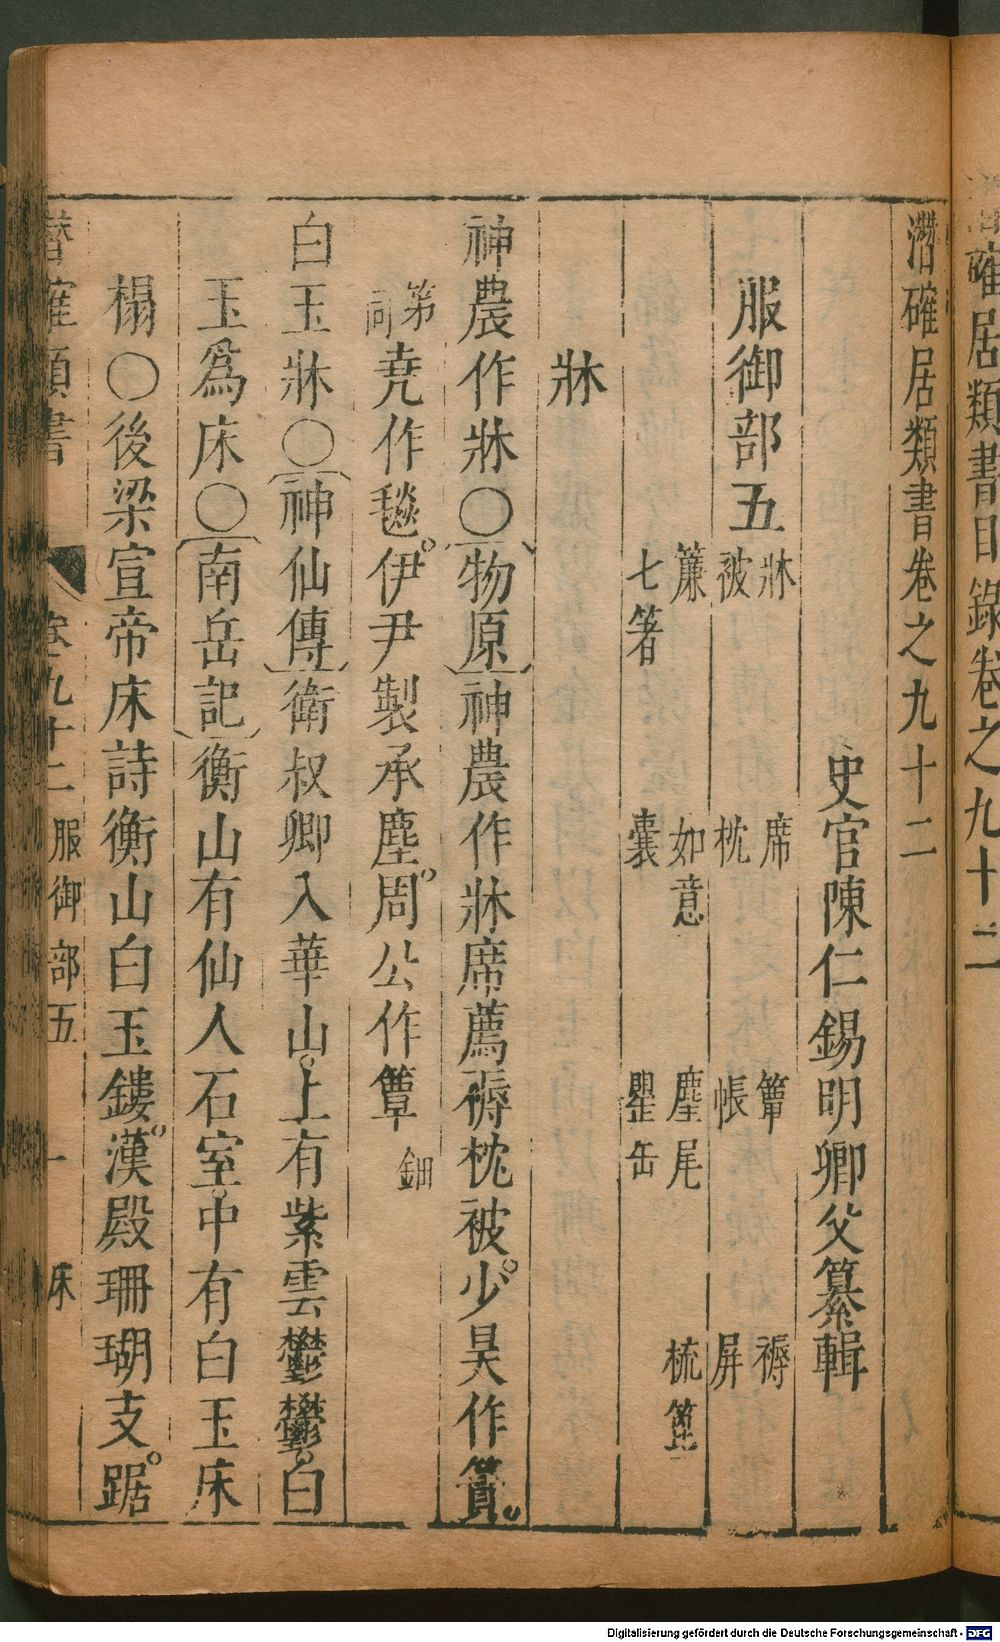 潛確居類書目錄卷之九十二
潛確居類書卷之九十二
史官陳仁錫明卿父纂輯
服御部五
牀 席 簟 褥
被 枕 帳 屏
簾 如意 麈尾 梳篦
七箸 囊 罌缶
牀
神農作牀〇物原神農作牀席薦褥枕被少昊作簀
第 堯作毯伊尹製承塵周公作簟 鈿
白玉牀〇神仙傳衛叔卿入華山上有紫雲鬱鬱白
玉爲床〇南岳記衡山有仙人石室中有白玉床
榻〇後梁宣帝床詩衡山白玉鏤漢殿珊瑚支踞
潛確類書 卷九十二 服御部五 一 床
Digitalisierung gefördert durch die Deutsche Forschungsgemeinschaft - DFG